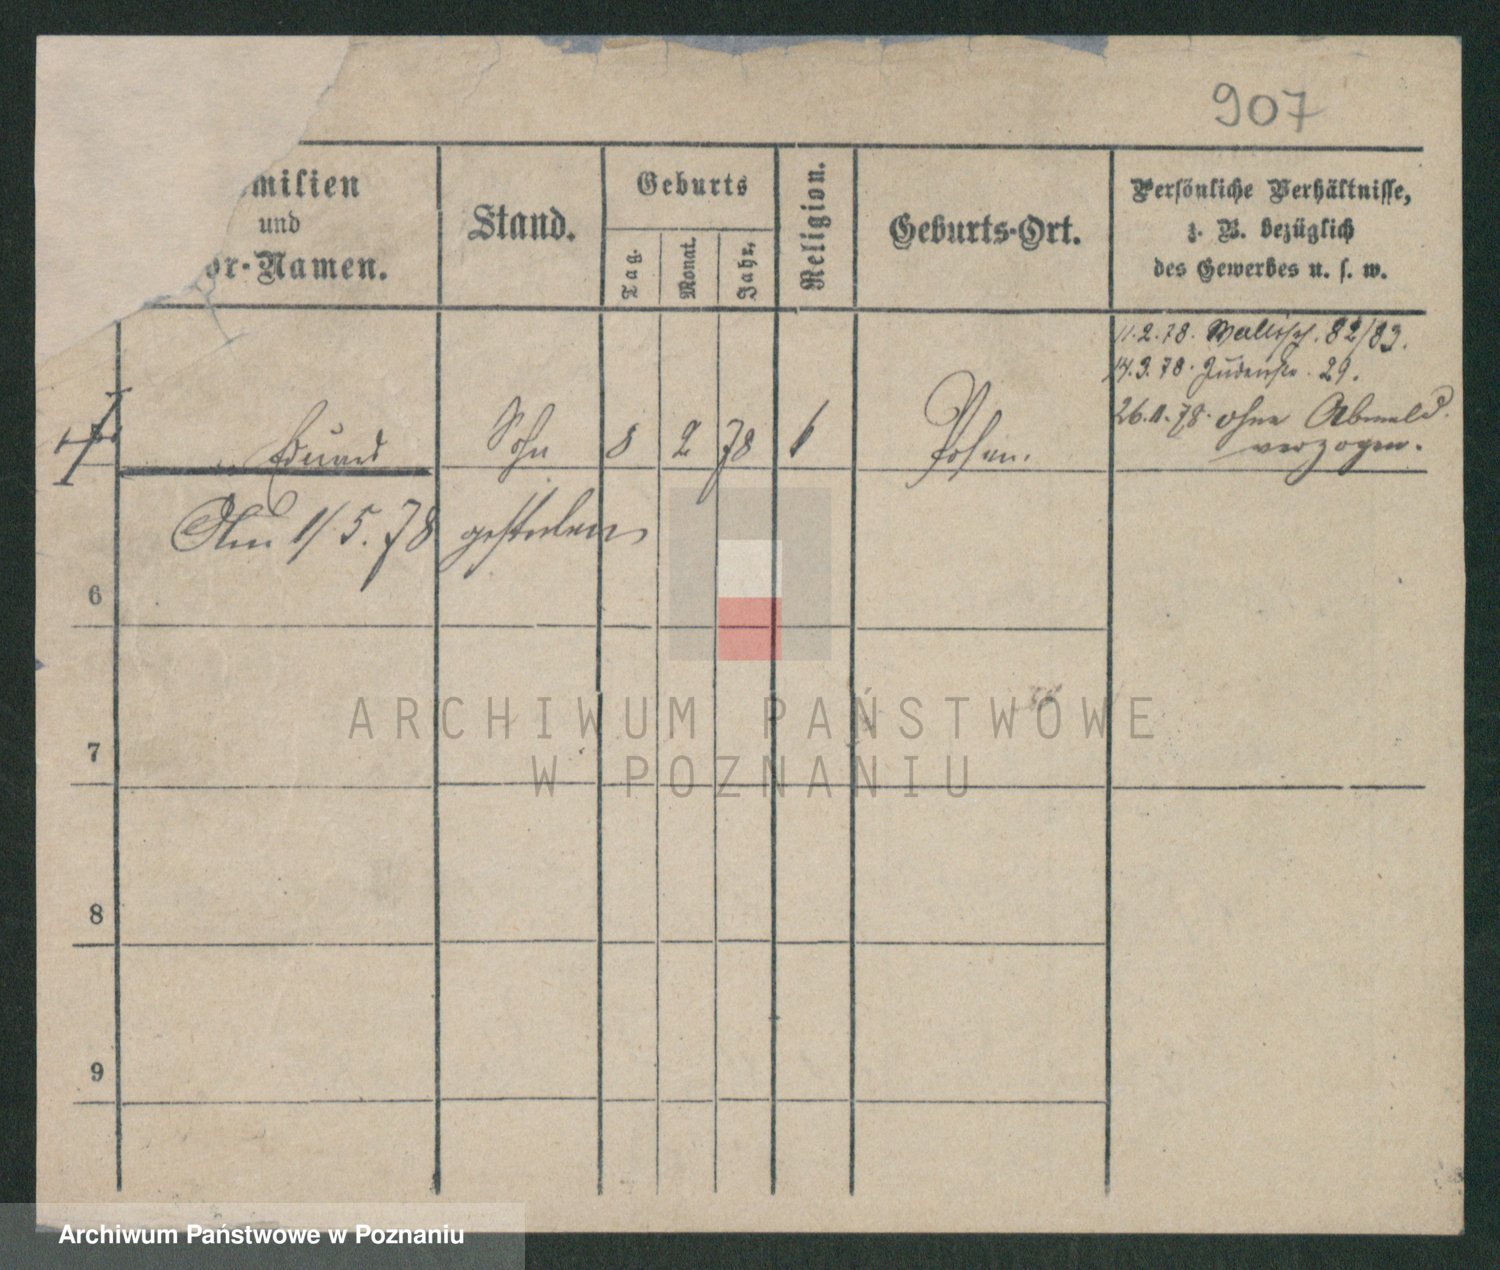 907
milien
und
or-Namen.
Stand.
Geburts
Tag.
Monat.
Jahr.
Religion.
Geburts-Ort.
Persönliche Verhältnisse,
z. B. bezüglich
des Gewerbes u. s. w.
11.2.78. Wallisch. 82/83.
14.3.78. Judenstr. 29.
26.11.78. ohne Abmeld.
verzogen.
Eduard Sohn 8 2 78 Posen.
Am 1/5.78 gestorben
6
7
8
9
ARCHIWUM PAŃSTWOWE
W POZNANIU
Archiwum Państwowe w Poznaniu